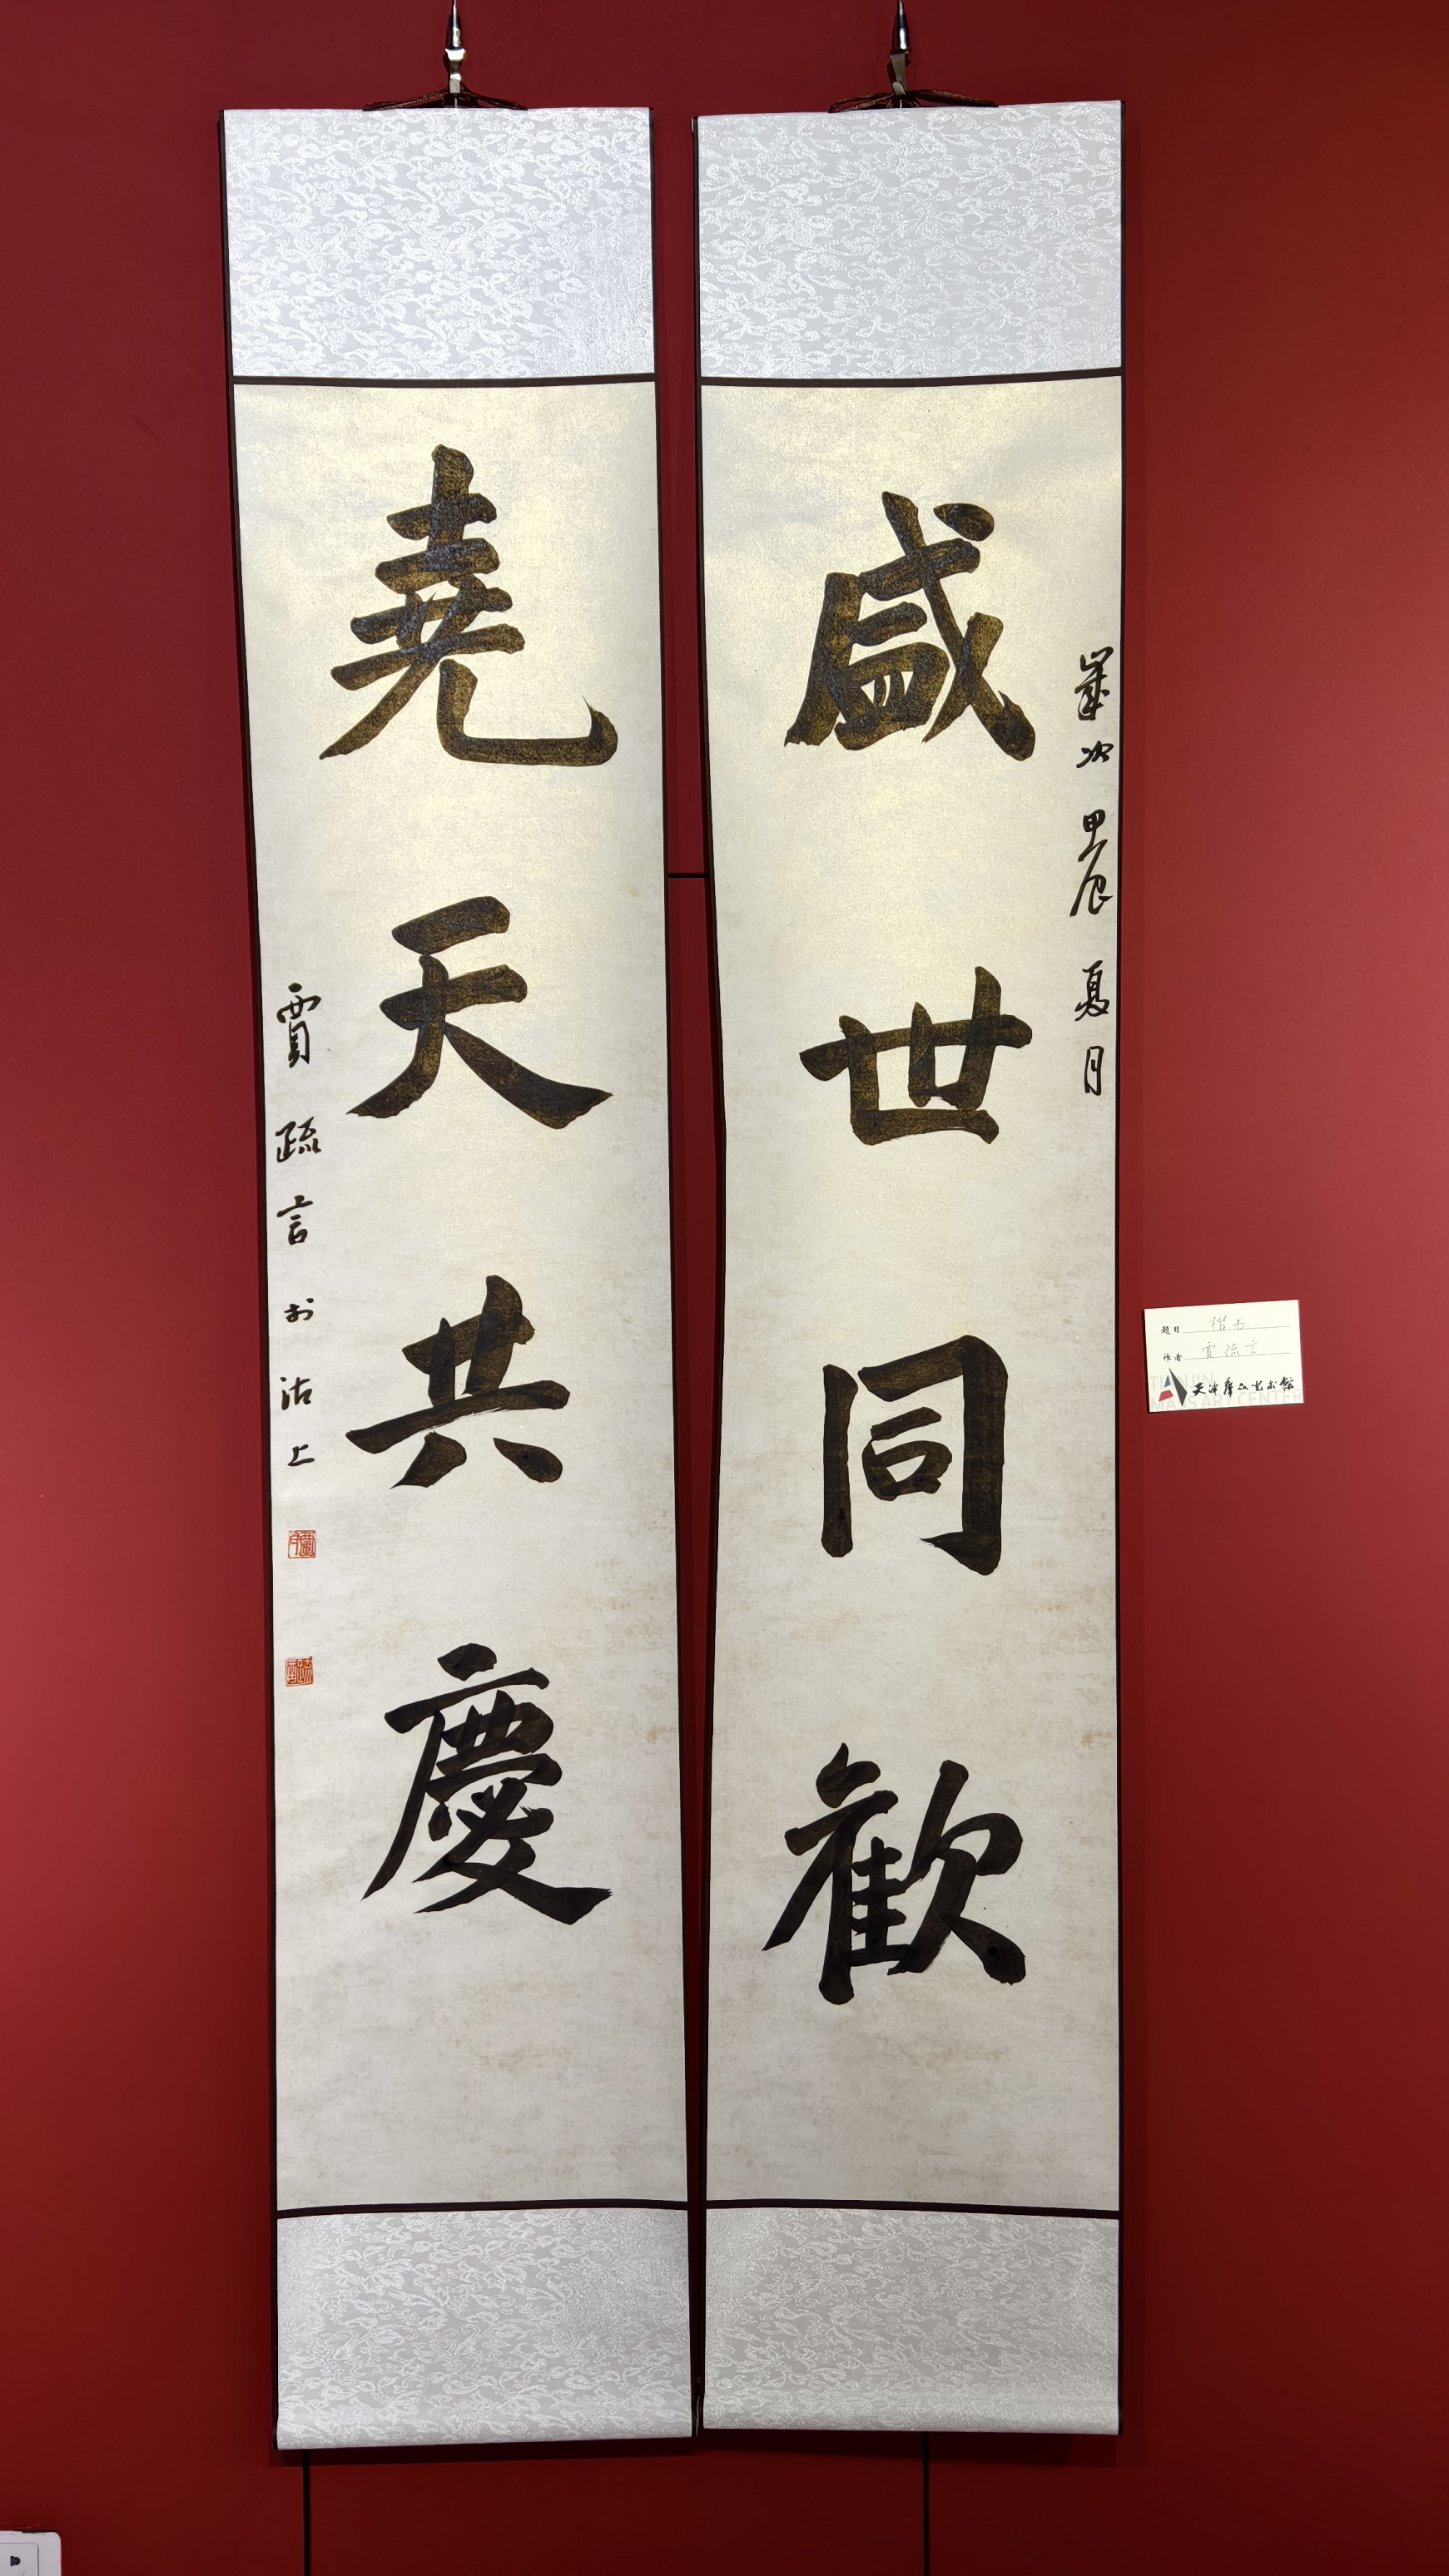 歲次甲辰夏月
盛世同歡
堯天共慶
賈疏言於沽上
题目 楷书
作者 贾疏言
天津群众艺术馆
TIANJIN
MASS ART CENTER